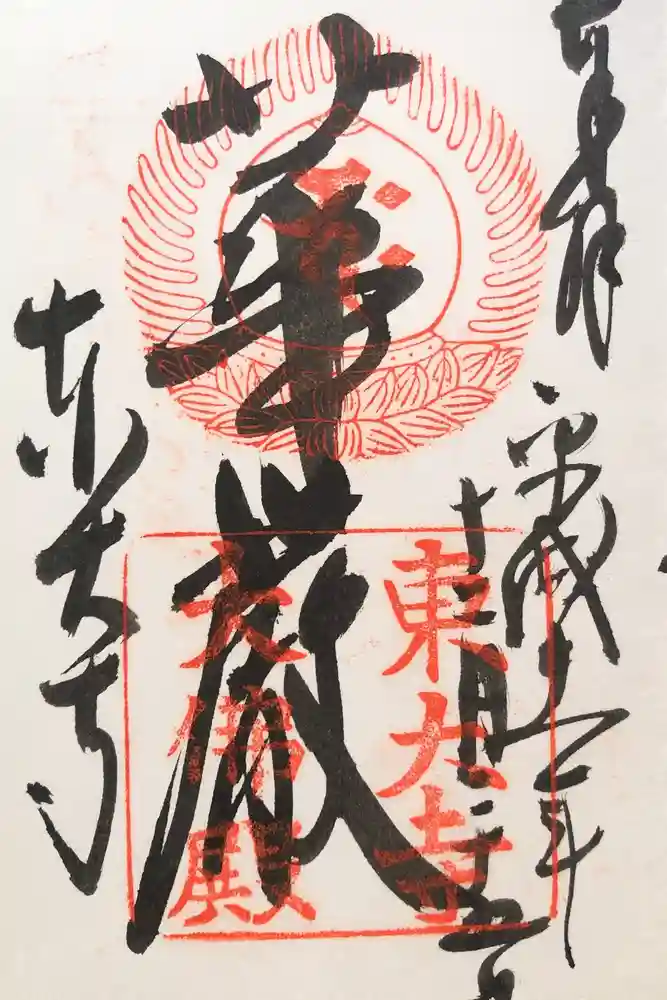 奉拝
平成
華厳
東大寺
東大寺
大佛殿